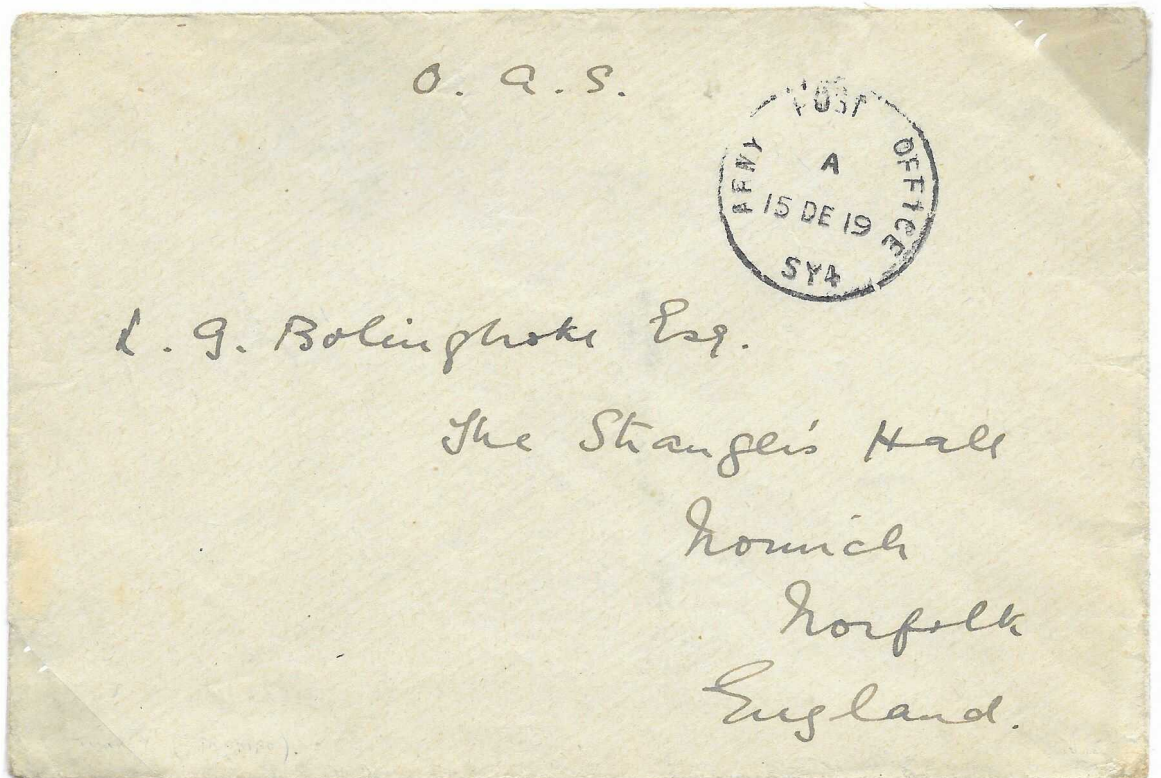 O. A. S.
ARMY POST OFFICE
A
15 DE 19
SY4
L. G. Bolingbroke Esq.
The Stranger's Hall
Norwich
Norfolk
England.